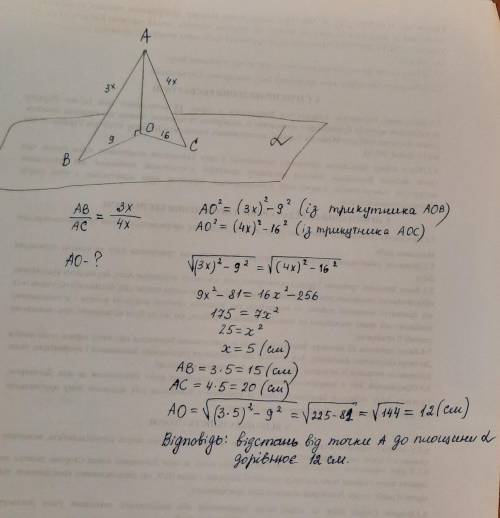 A
3x
4x
9
O
16
B
C
α
AB/AC = 3x/4x
AO² = (3x)² - 9² (із трикутника AOB)
AO² = (4x)² - 16² (із трикутника AOC)
AO - ?
√(3x)² - 9² = √(4x)² - 16²
9x² - 81 = 16x² - 256
175 = 7x²
25 = x²
x = 5 (см)
AB = 3·5 = 15 (см)
AC = 4·5 = 20 (см)
AO = √(3·5)² - 9² = √225 - 81 = √144 = 12 (см)
Відповідь: відстань від точки A до площини α
дорівнює 12 см.